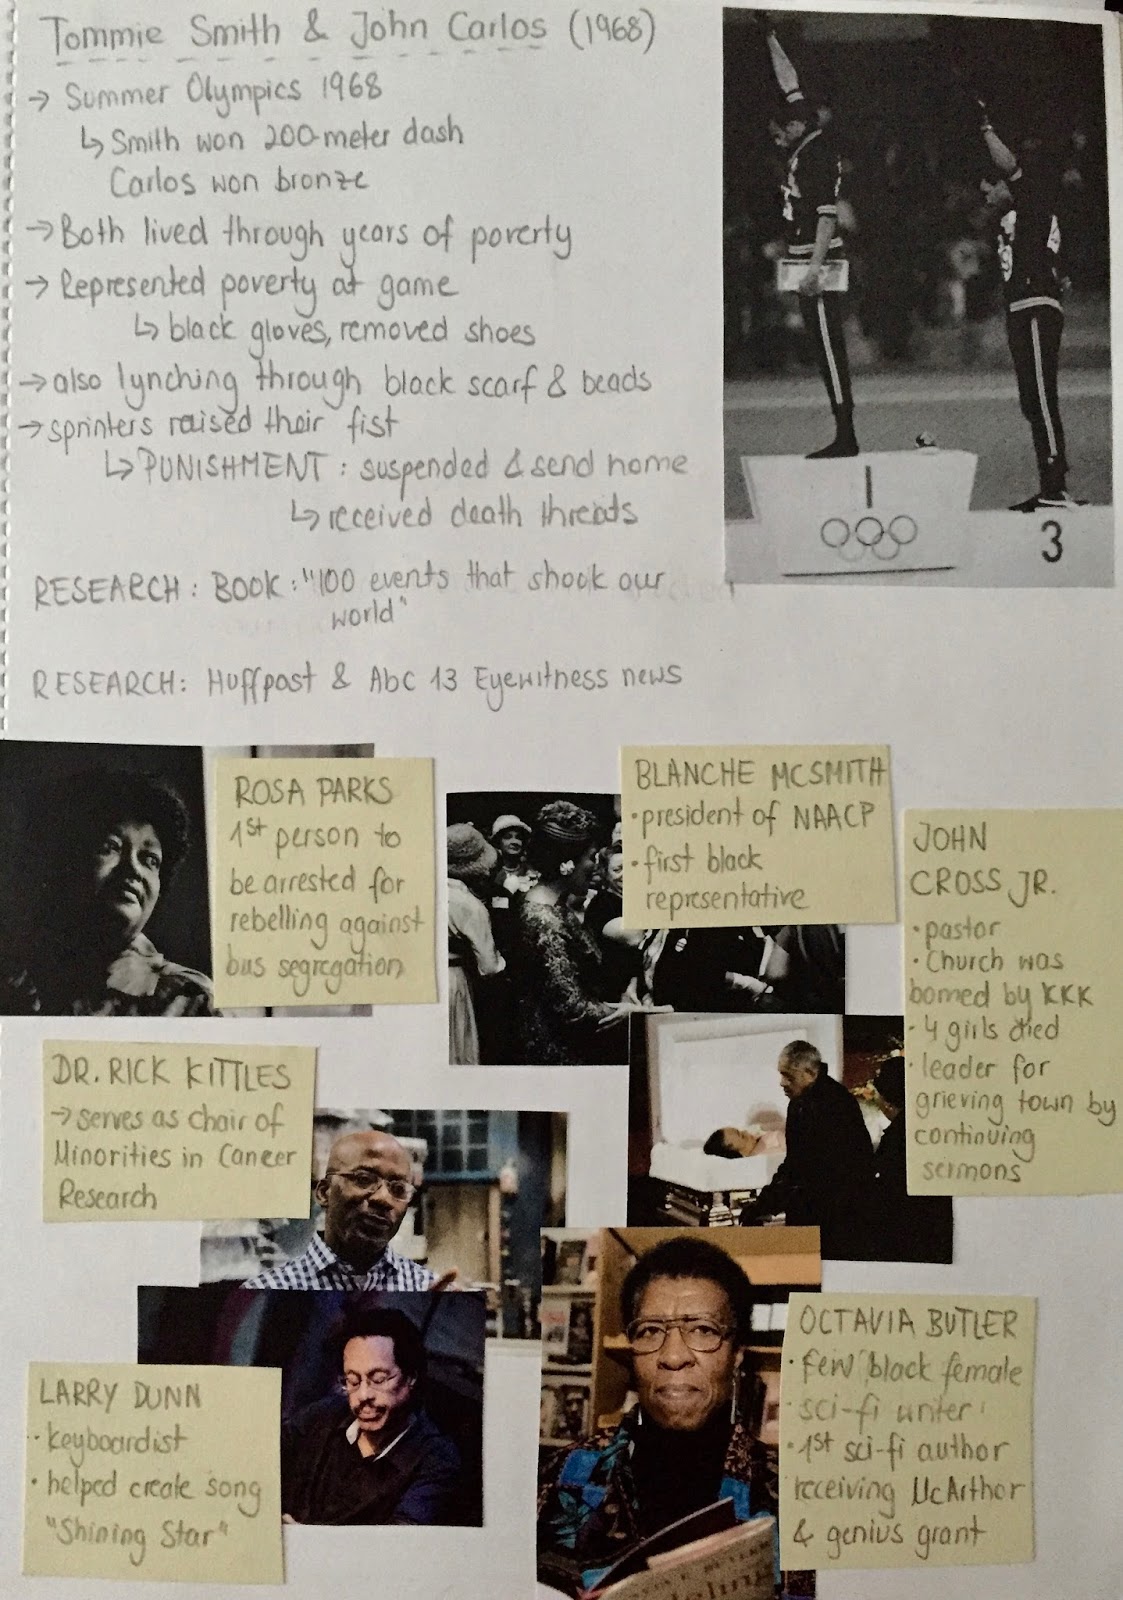 Tommie Smith & John Carlos (1968)
→ Summer Olympics 1968
↳ Smith won 200-meter dash
Carlos won bronze
→ Both lived through years of poverty
→ Represented poverty at game
↳ black gloves, removed shoes
→ also lynching through black scarf & beads
→ sprinters raised their fist
↳ PUNISHMENT : suspended & send home
↳ received death threats
RESEARCH : BOOK : "100 events that shook our
world"
RESEARCH: Huffpost & Abc 13 Eyewitness news
1
3
ROSA PARKS
1st person to
be arrested for
rebelling against
bus segregation
BLANCHE MCSMITH
• president of NAACP
• first black
representative
JOHN
CROSS JR.
• pastor
• Church was
bomed by KKK
• 4 girls died
• leader for
grieving town by
continuing
sermons
DR. RICK KITTLES
→ serves as chair of
Minorities in Cancer
Research
LARRY DUNN
• keyboardist
• helped create song
"Shining Star"
OCTAVIA BUTLER
• few black female
sci-fi writer
• 1st sci-fi author
receiving McArthor
& genius grant